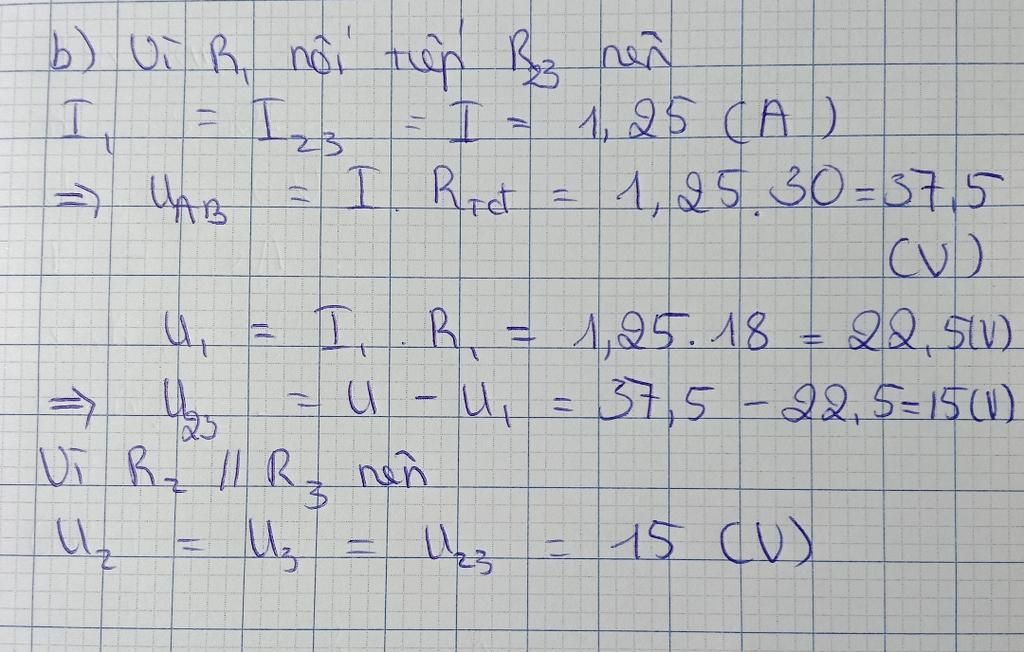 b) Vì R₁ nối tiếp R₂₃ nên
I₁ = I₂₃ = I = 1,25 (A)
=> U_AB = I . R_Tđ = 1,25.30=37,5
(V)
U₁ = I₁ . R₁ = 1,25.18 = 22,5(V)
=> U₂₃ = U - U₁ = 37,5 - 22,5=15(V)
Vì R₂ // R₃ nên
U₂ = U₃ = U₂₃ = 15 (V)